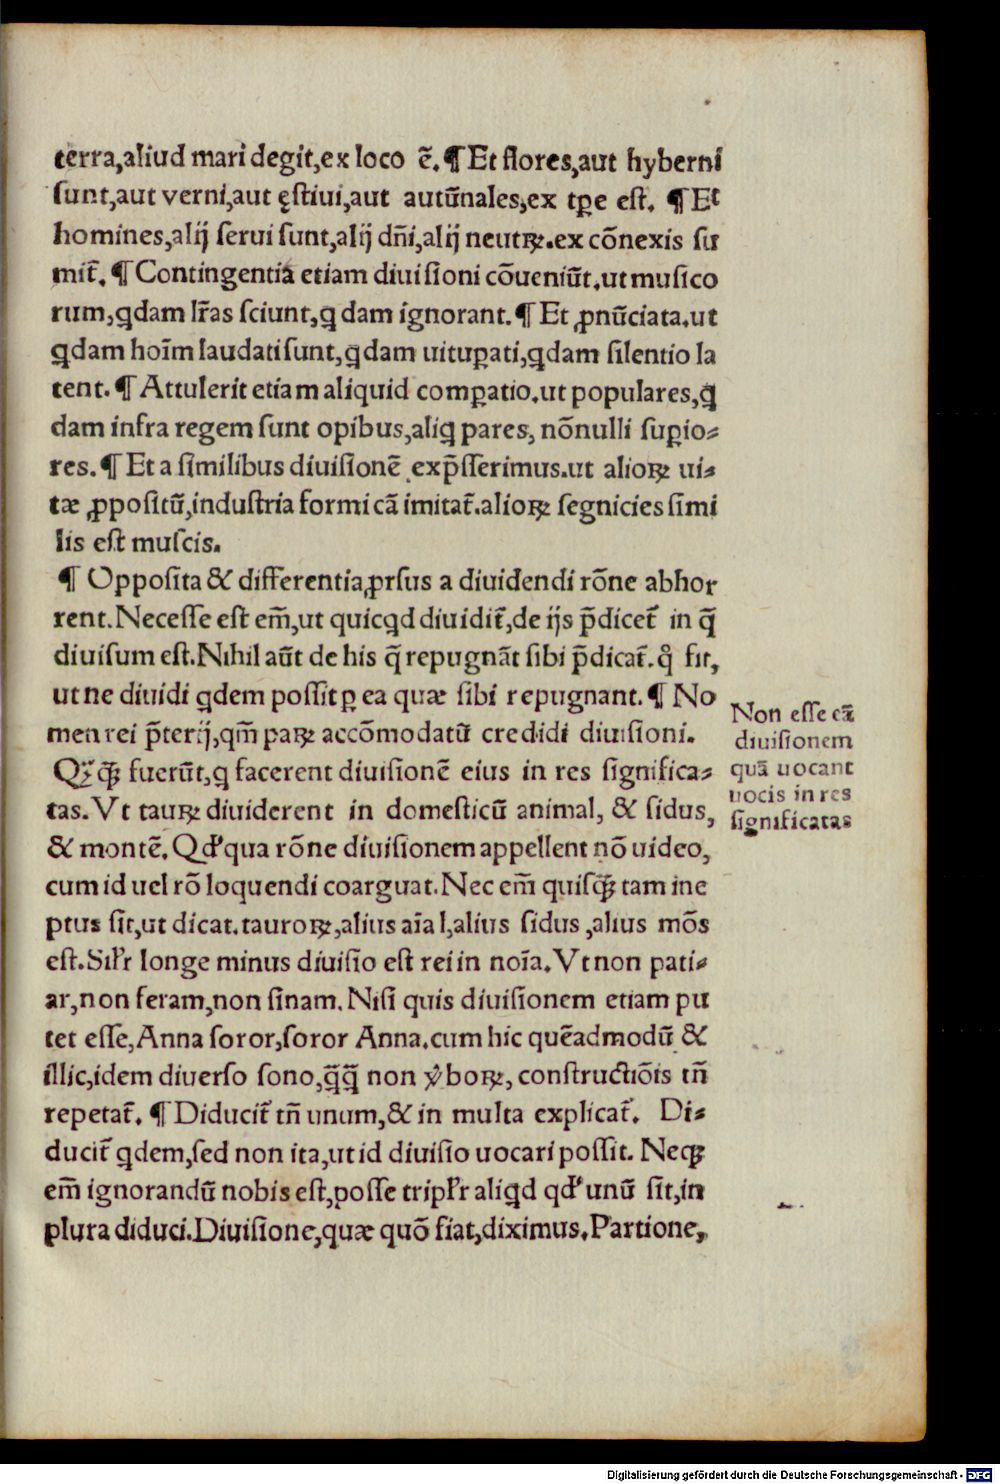 terra,aliud mari degit,ex loco ē.¶Et flores,aut hyberni
sunt,aut verni,aut ęstiui,aut autūnales,ex tꝑe est. ¶Et
homines,alij serui sunt,alij dñi,alij neutꝝ.ex cōnexis su
mit̃.¶Contingentia etiam diuisioni cōueniūt.ut musico
rum,ꝗdam lr̃as sciunt,ꝗ dam ignorant.¶Et ꝓnūciata.ut
ꝗdam hoīm laudati sunt,ꝗdam uituꝑati,ꝗdam silentio la
tent.¶Attulerit etiam aliquid comꝑatio.ut populares,ꝗ
dam infra regem sunt opibus,aliꝗ pares, nōnulli suꝑio-
res.¶Et a similibus diuisionē exp̄sserimus.ut alioꝝ ui-
tæ ꝓpositū,industria formicā imitat̃.alioꝝ segnicies simi
lis est muscis.
¶ Opposita & differentia,ꝓrsus a diuidendi rōne abhor
rent.Necesse est em̄,ut quicꝗd diuidit̃,de ijs p̄dicet̃ in q̄
diuisum est.Nihil aūt de his q̄ repugnāt sibi p̄dicat̃.qͦ fit,
ut ne diuidi ꝗdem possit ꝑ ea quæ sibi repugnant.¶ No
men rei p̄terij,qm̄ paꝝ accōmodatū credidi diuisioni.
Non esse eā
diuisionem
quā uocant
uocis in res
significatas
Qꝝꝙ fuerūt,ꝗ facerent diuisionē eius in res significa-
tas.Vt tauꝝ diuiderent in domesticū animal, & sidus,
& montē.Qđ qua rōne diuisionem appellent nō uideo,
cum id uel rō loquendi coarguat.Nec em̄ quisꝙ tam ine
ptus sit,ut dicat.tauroꝝ,alius aīal,alius sidus,alius mōs
est.Silr̃ longe minus diuisio est rei in noīa.Vt non pati-
ar,non feram,non sinam.Nisi quis diuisionem etiam pu
tet esse,Anna soror,soror Anna.cum hic quēadmodū &
illic,idem diuerso sono,q̄q̄ non ꝟboꝝ,constructiōis tn̄
repetat̃.¶Diducit̃ tn̄ unum,& in multa explicat̃. Di-
ducit̃ ꝗdem,sed non ita,ut id diuisio uocari possit. Neqꝫ
em̄ ignorandū nobis est,posse triplr̃ aliꝗd qđ unū sit,in
plura diduci.Diuisione,quæ quō fiat,diximus.Partione,
Digitalisierung gefördert durch die Deutsche Forschungsgemeinschaft - DFG